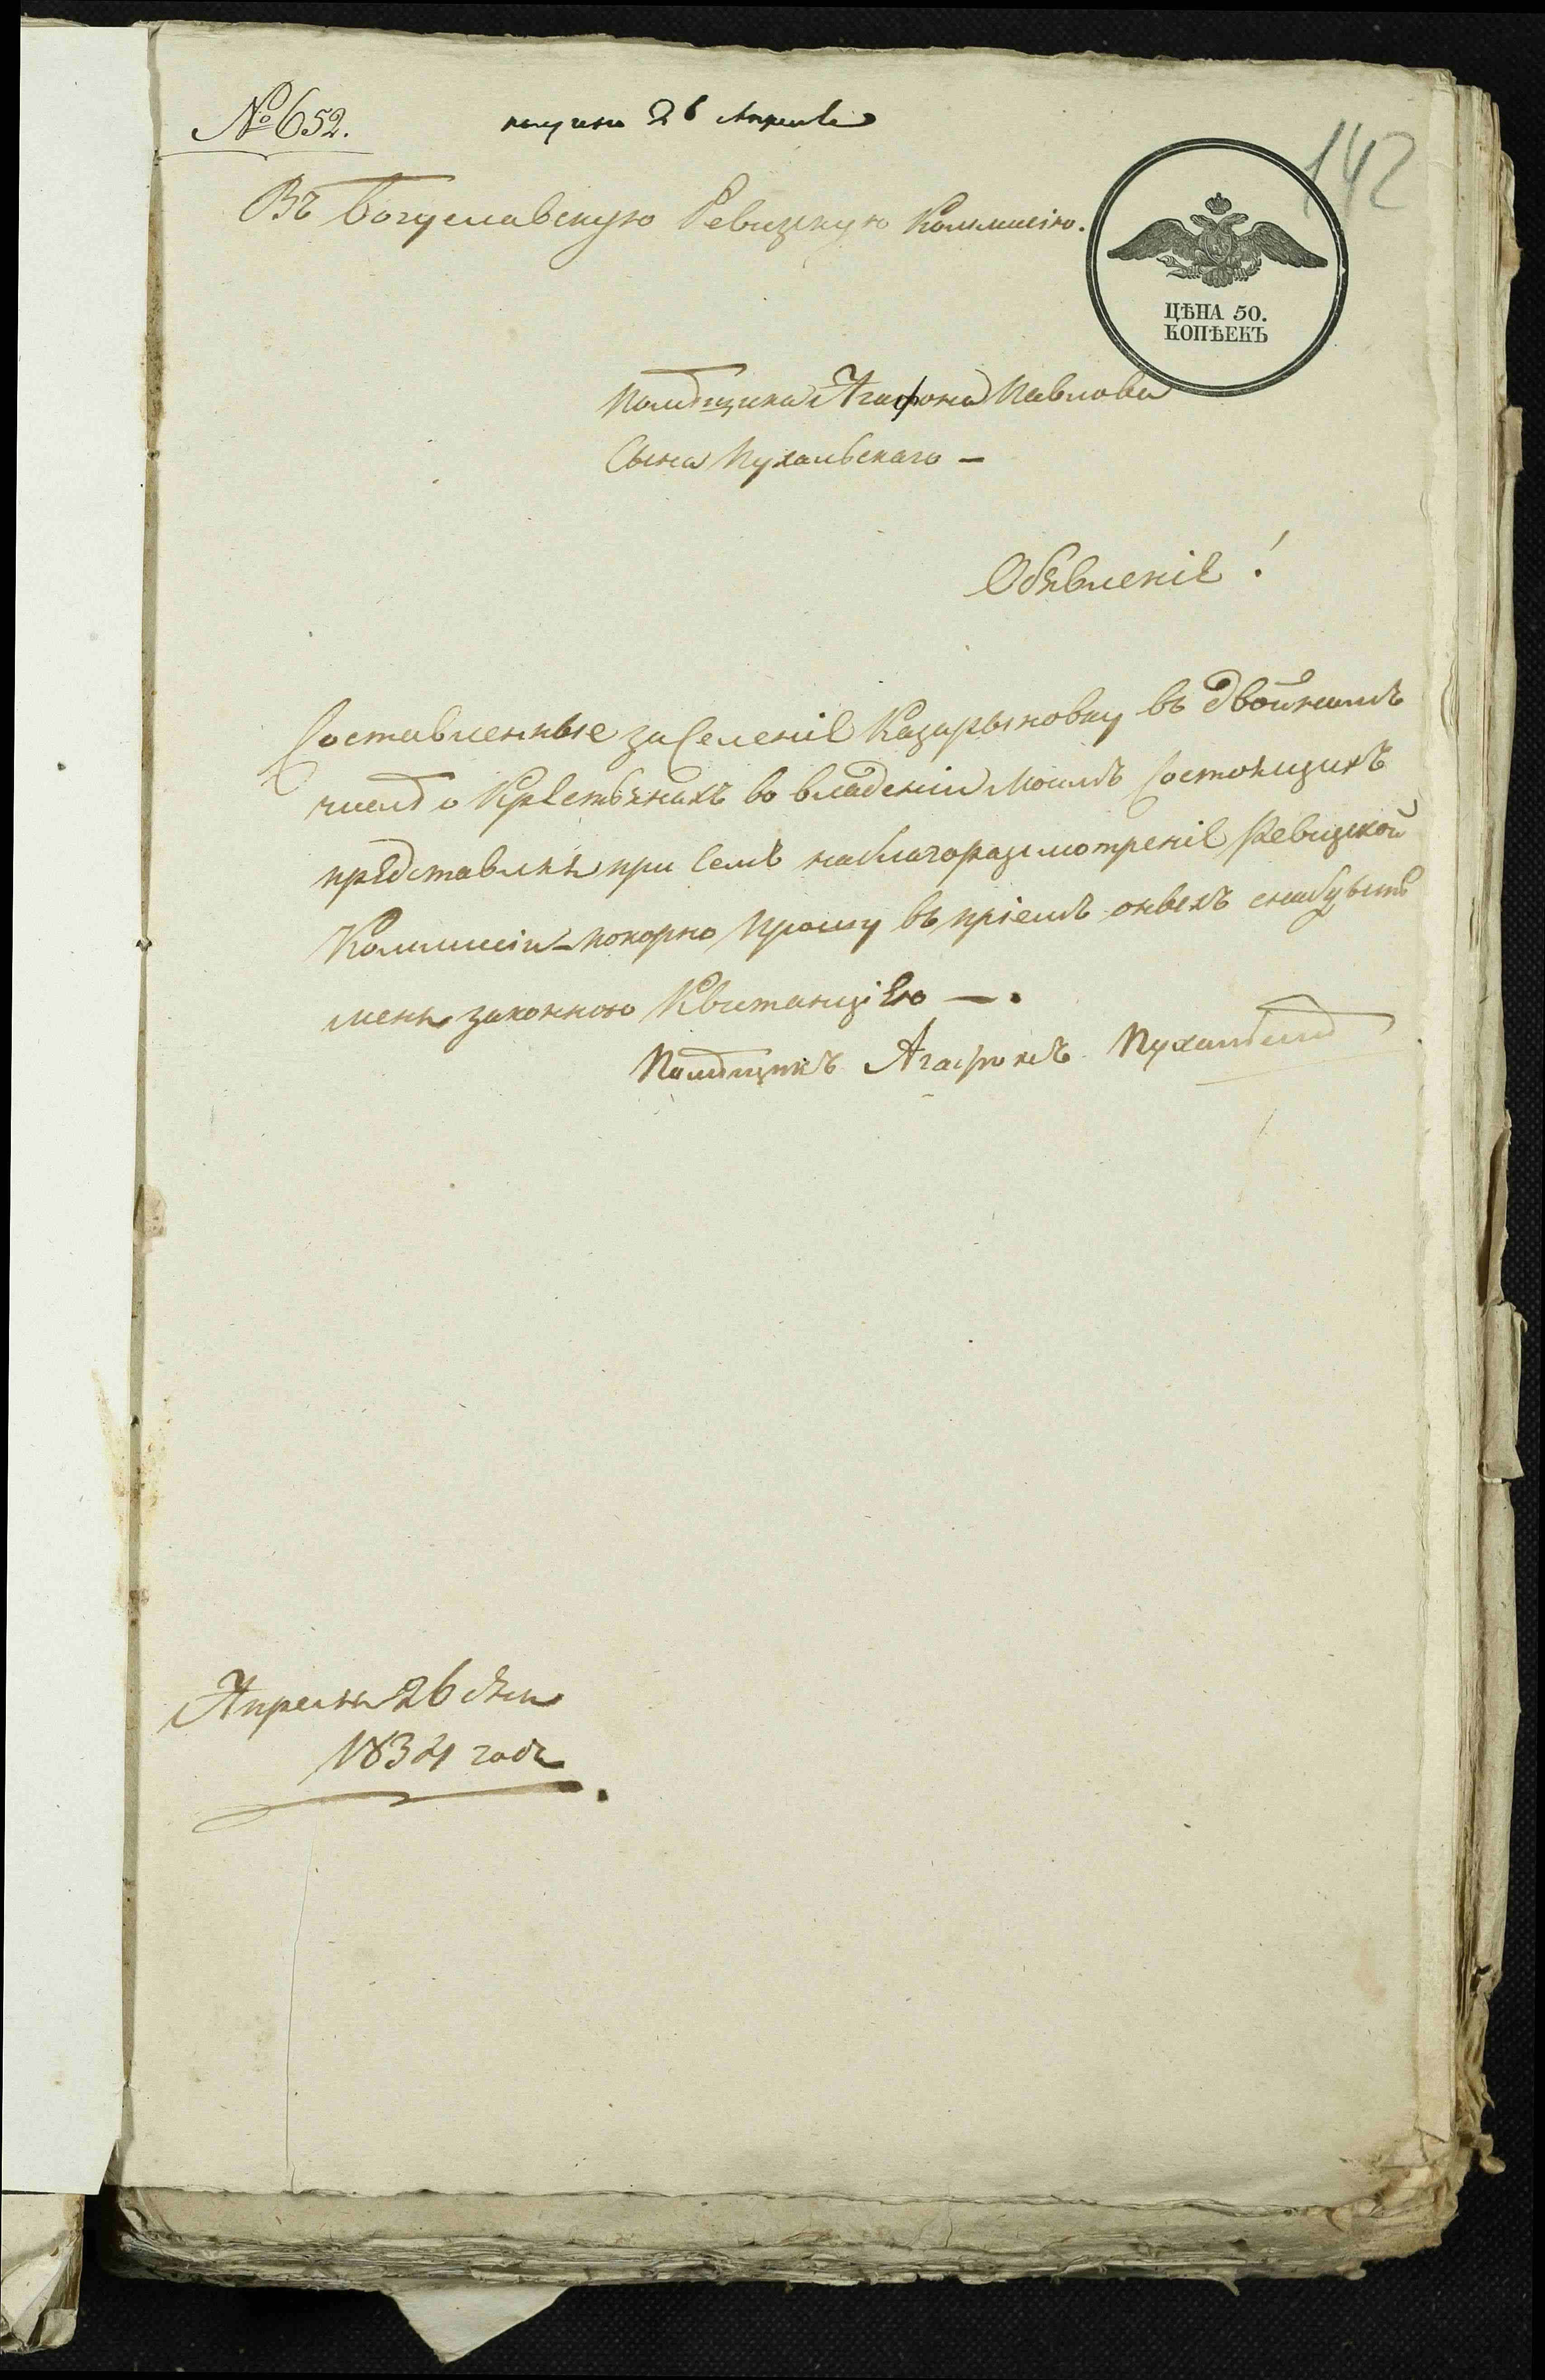 № 652.
получено 26 Апреля
142
Въ Богуславскую Ревизкую Коммисію.
ЦѢНА 50.
КОПѢЕКЪ
Помѣщика Агафона Павлова
Сына Пухальскаго —
Обявленіе!
Составленные за Селеніе Казарыновку въ двойномъ
числѣ о Крестьянахъ во владеніи Моимъ Состоящихъ
представляя при Семъ на благоразсмотреніе Ревизкой
Коммисіи – покорно прошу въ пріемѣ оныхъ снабдыть
меня законною Квитанціею —.
Помѣщикъ Агафонъ Пухальский
Апреля 26 дня
1834 года